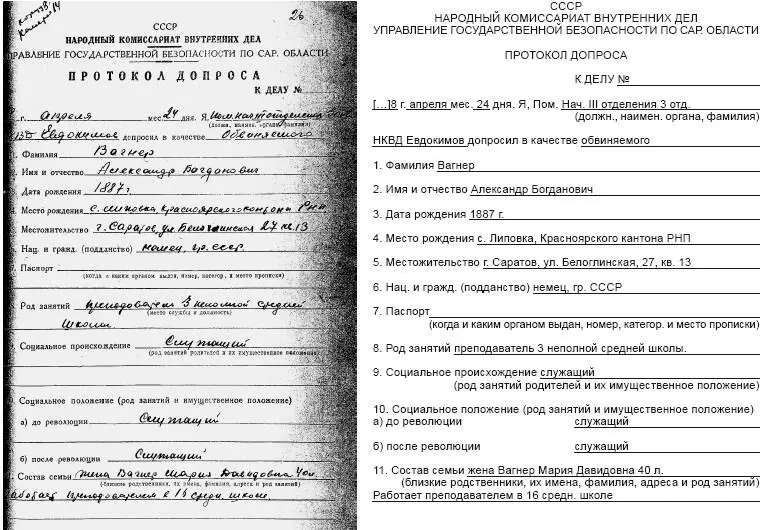 26
СССР
НАРОДНЫЙ КОМИССАРИАТ ВНУТРЕННИХ ДЕЛ
ПРАВЛЕНИЕ ГОСУДАРСТВЕННОЙ БЕЗОПАСНОСТИ ПО САР. ОБЛАСТИ
ПРОТОКОЛ ДОПРОСА
К ДЕЛУ №
г. апреля мес. 24 дня. Я,
(должн., наимен. органа, фамилия)
Евдокимов допросил в качестве Обвиняемого
1. Фамилия Вагнер
2. Имя и отчество Александр Богданович
Дата рождения 1887 г.
4. Место рождения с. Липовка, Красноярского кантона РНП
5. Местожительство г. Саратов, ул. Белоглинская 27 кв. 13
6. Нац. и гражд. (подданство) немец, гр. СССР
7. Паспорт
(когда и каким органом выдан, номер, категор. и место прописки)
8. Род занятий преподаватель 3 неполной средней
(место службы и должность)
школы
9. Социальное происхождение Служащий
(род занятий родителей и их имущественное положение)
Социальное положение (род занятий и имущественное положение)
а) до революции Служащий
б) после революции Служащий
Состав семьи жена Вагнер Мария Давидовна 40 л.
(близкие родственники, их имена, фамилии, адреса и род занятий)
работает преподавателем в 16 средн. школе
СССР
НАРОДНЫЙ КОМИССАРИАТ ВНУТРЕННИХ ДЕЛ
УПРАВЛЕНИЕ ГОСУДАРСТВЕННОЙ БЕЗОПАСНОСТИ ПО САР. ОБЛАСТИ
ПРОТОКОЛ ДОПРОСА
К ДЕЛУ №
[...]8 г. апреля мес. 24 дня. Я, Пом. Нач. III отделения 3 отд.
(должн., наимен. органа, фамилия)
НКВД Евдокимов допросил в качестве обвиняемого
1. Фамилия Вагнер
2. Имя и отчество Александр Богданович
3. Дата рождения 1887 г.
4. Место рождения с. Липовка, Красноярского кантона РНП
5. Местожительство г. Саратов, ул. Белоглинская, 27, кв. 13
6. Нац. и гражд. (подданство) немец, гр. СССР
7. Паспорт
(когда и каким органом выдан, номер, категор. и место прописки)
8. Род занятий преподаватель 3 неполной средней школы.
9. Социальное происхождение служащий
(род занятий родителей и их имущественное положение)
10. Социальное положение (род занятий и имущественное положение)
а) до революции служащий
б) после революции служащий
11. Состав семьи жена Вагнер Мария Давидовна 40 л.
(близкие родственники, их имена, фамилия, адреса и род занятий)
Работает преподавателем в 16 средн. школе